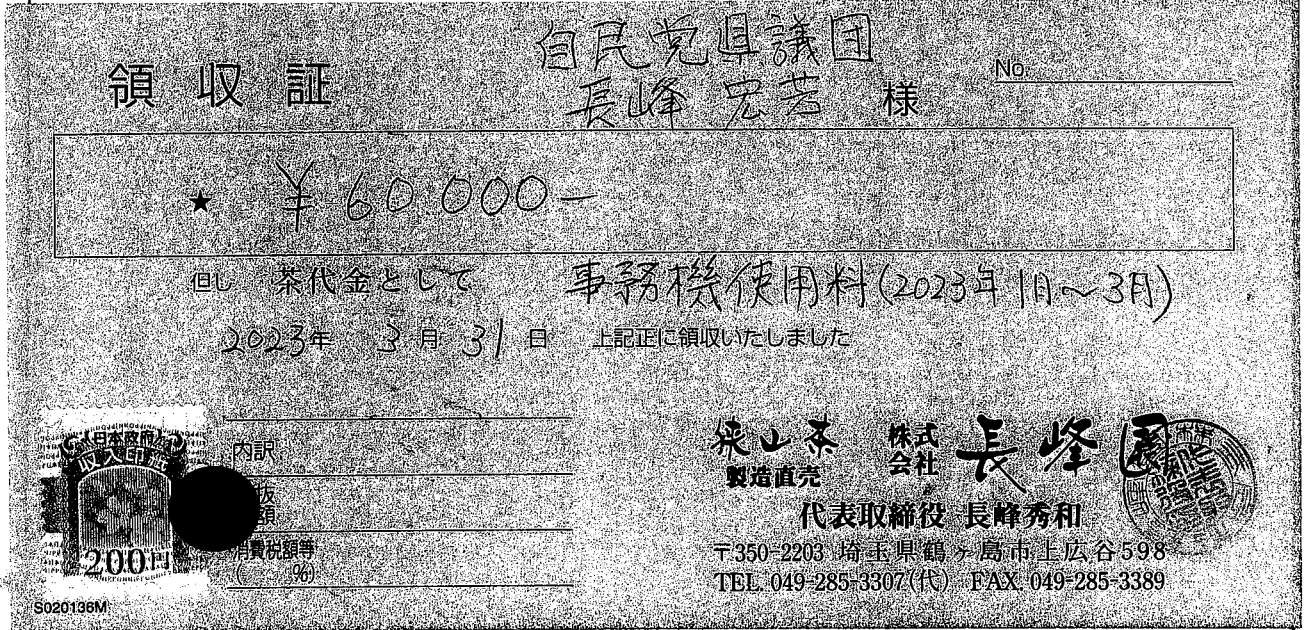 領収証
自民党県議団
長峰 宏芳 様
No.
★ ¥60,000-
但し 茶代金として 事務機使用料(2023年1月~3月)
2023年 3月 31日 上記正に領収いたしました
日本政府
収入印紙
200円
内訳
消費税額等
( %)
狭山茶
製造直売
株式会社 長峰園
代表取締役 長峰秀和
〒350-2203 埼玉県鶴ヶ島市上広谷598
TEL. 049-285-3307(代) FAX. 049-285-3389
S020136M